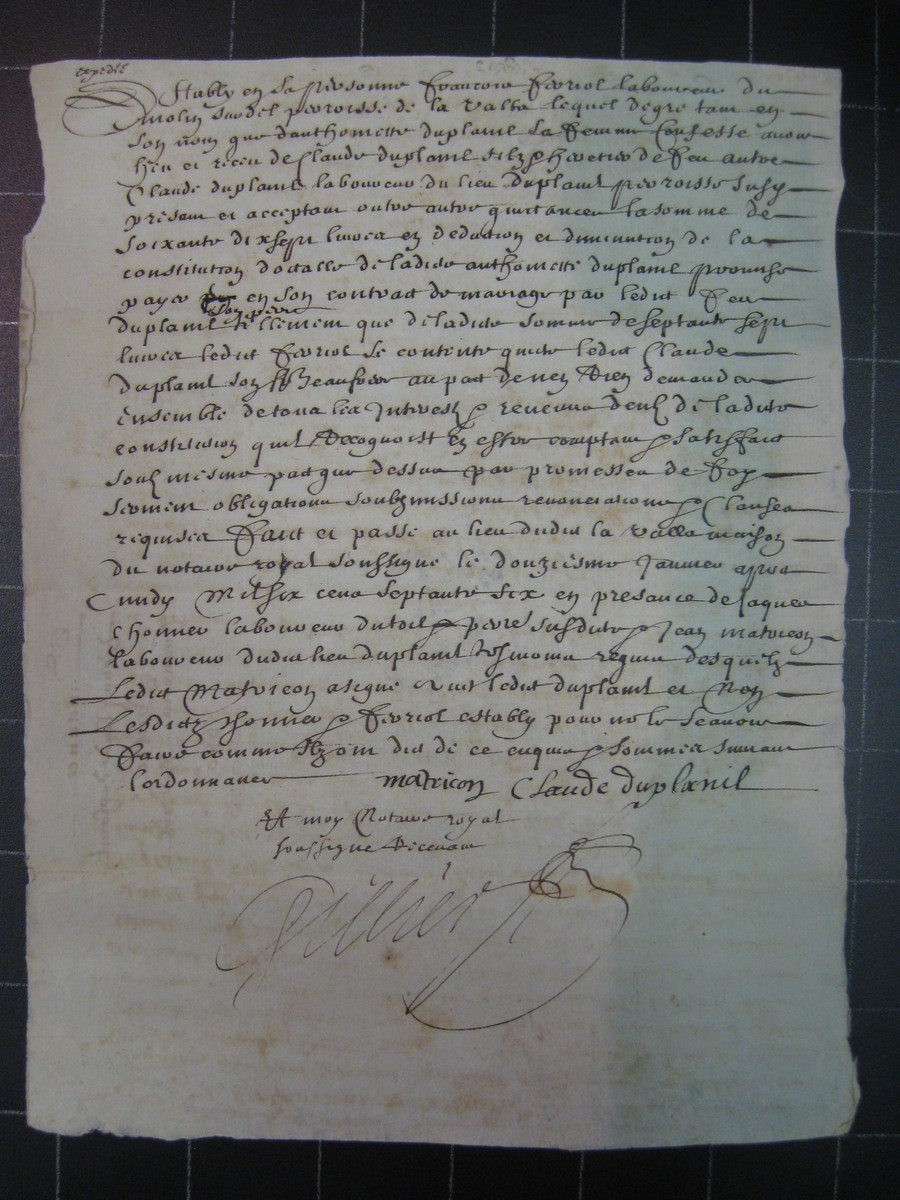 expedié
Estably en sa personne francois fevriol laboureur du
molin sardel perroisse de la valla lequel de gre tam en
son nom que danthomette duplanil sa femme confesse avoir
heu et receu de Claude duplanil filz & heretier de feu autre
Claude duplanil laboureur du lieu duplanil perroisse susd
presam et acceptam outre autre quictances la somme de
soixante dix sept livres en deduction et diminution de la
constitution dotalle de ladite anthomette duplanil promise
payer en son contract de mariage par ledict feu
son pere
duplanil tellement que de ladite somme de septante sept
livres ledict fevriol se contente quite ledict Claude
duplanil son beaufrere au pact de nen rien demander
ensemble de tous les interestz & revenus de ladite
constitution quil recognoist en estre comptam & satisfaict
soubz mesme pact que dessus par promesses de foy
serment obligations soubzmissions renonciations & clauses
requises faict et passe au lieu dudit la valla maison
du notaire royal soussigne le douziesme janvier apres
midy mil six cens septante six en presance de Jaques
thonner laboureur du perre susdite & Jean matricon
laboureur dudit lieu duplanil tesmoins requis desquelz
Ledict matricon a signe avec ledict duplanil et non
Lesdictz thonner & fevriol estably pour ne le scavoir
faire comme ilz ont dit de ce enquis & sommes suivant
lordonnance
matricon Claude duplanil
Et moy Notaire royal
soussigne recevant